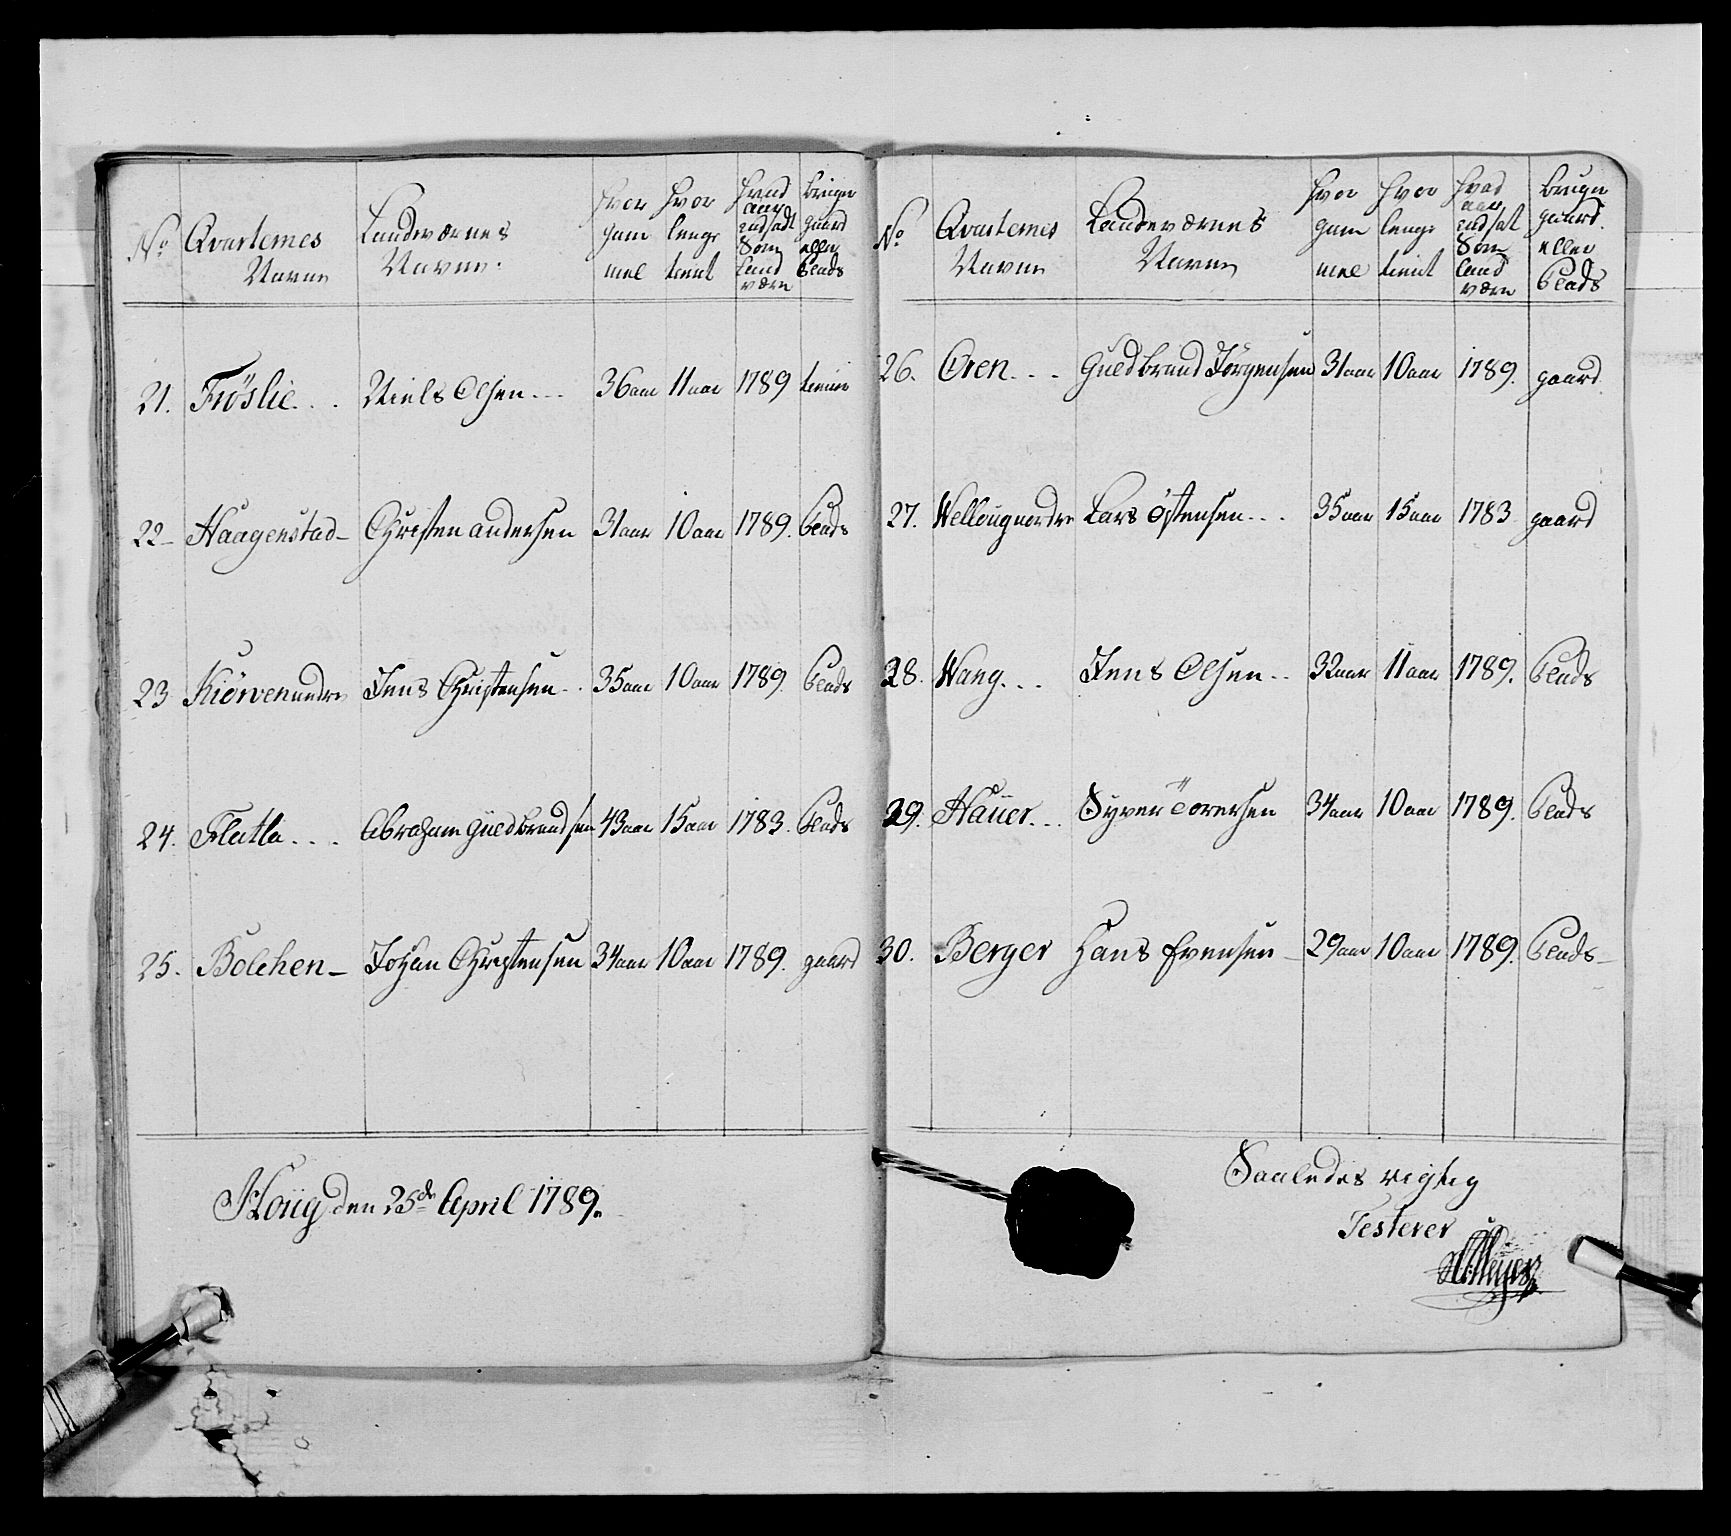 No Qvarternes Navne
Landeværnes Navne.
hvor gam mel
hvor lenge tient
hvad aar indsadt Som Land værn
bruger gaard eller Plads
21. Fröslie... Niels Olsen... 36 aar 11 aar 1789
22 Haagenstad Christen andersen 31 aar 10 aar 1789. Plads
23 Kiörven nndre Jens Christensen.. 35 aar 10 aar 1789. Plads
24. Flatla.... Abraham Guldbrandsen 43 aar 15 aar 1783. Plads
25. Bolchen Johan Christensen 34 aar 10 aar 1789. gaard
Houg den 25de April 1789.
No Qvarternes Navne
Landeværnes Navne
hvor gam mel
hvor lenge tient
hvad aar indsat Som Land værn
bruger gaard. eller Plads
26. Oren... Guldbrand Jörgensen 31 aar 10 aar 1789. gaard.
27. Velloug nordre Lars Östensen... 35 aar 15 aar 1783 gaard
28. Wang... Jens Olsen.. 32 aar 11 aar 1789. Plads
29. Hauer... Syver Torersen 34 aar 10 aar 1789. Plads
30. Berger Hans Evensen 29 aar 10 aar 1789. Plads
Saaledes rigtig
Testerer
Meyer